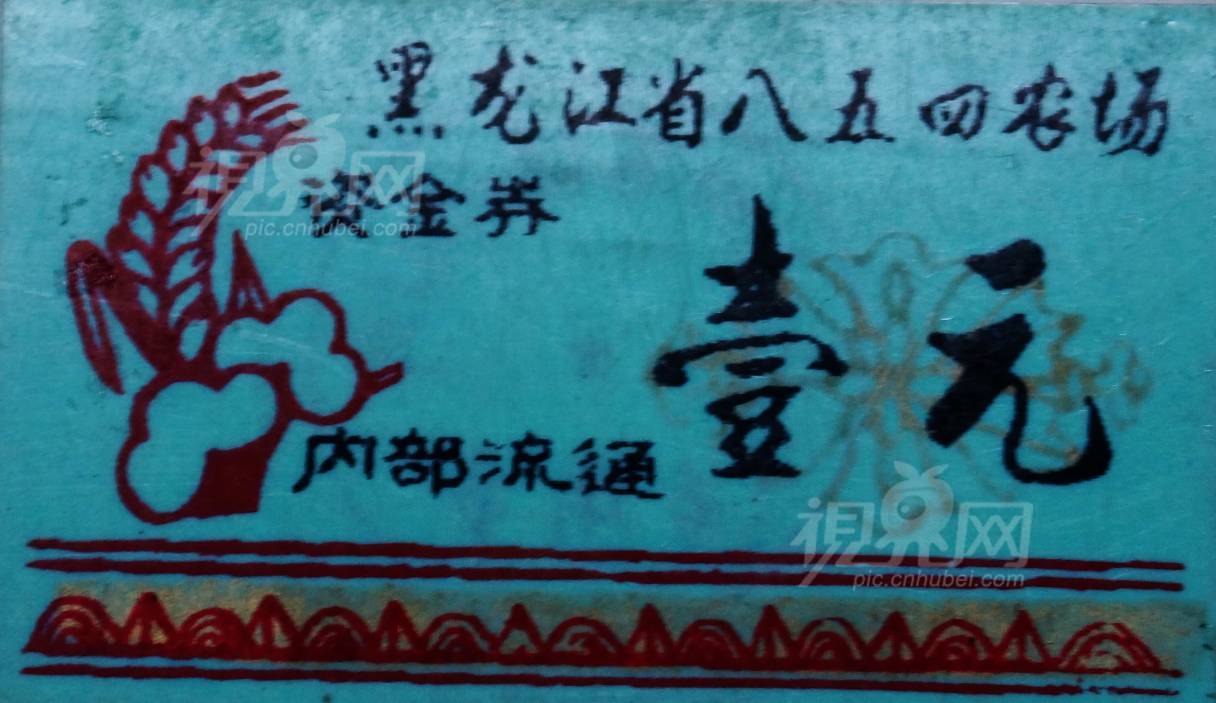 黑龙江省八五四农场
资金券
壹元
内部流通
視界网
pic.cnhubei.com
視界网
pic.cnhubei.com